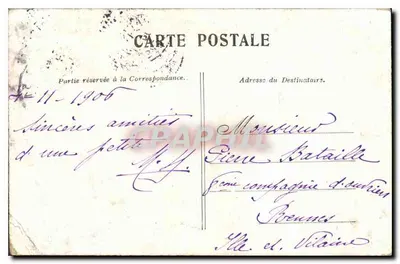 CARTE POSTALE
Partie réservée à la Correspondance.
Adresse du Destinataire.
11-1906
Sincères amitiés
d'une petite
Monsieur
Pierre Bataille
compagnie d'ouvriers
Rennes
Ille et Vilaine